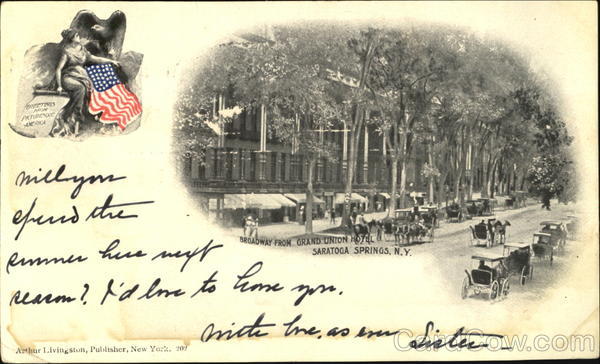 GREETINGS
FROM
PICTURESQUE
AMERICA
BROADWAY FROM GRAND UNION HOTEL
SARATOGA SPRINGS, N.Y.
Will you
spend the
summer here next
season? I'd love to have you.
With love, as ever Sister
Arthur Livingston, Publisher, New York. 207
CardCow.com